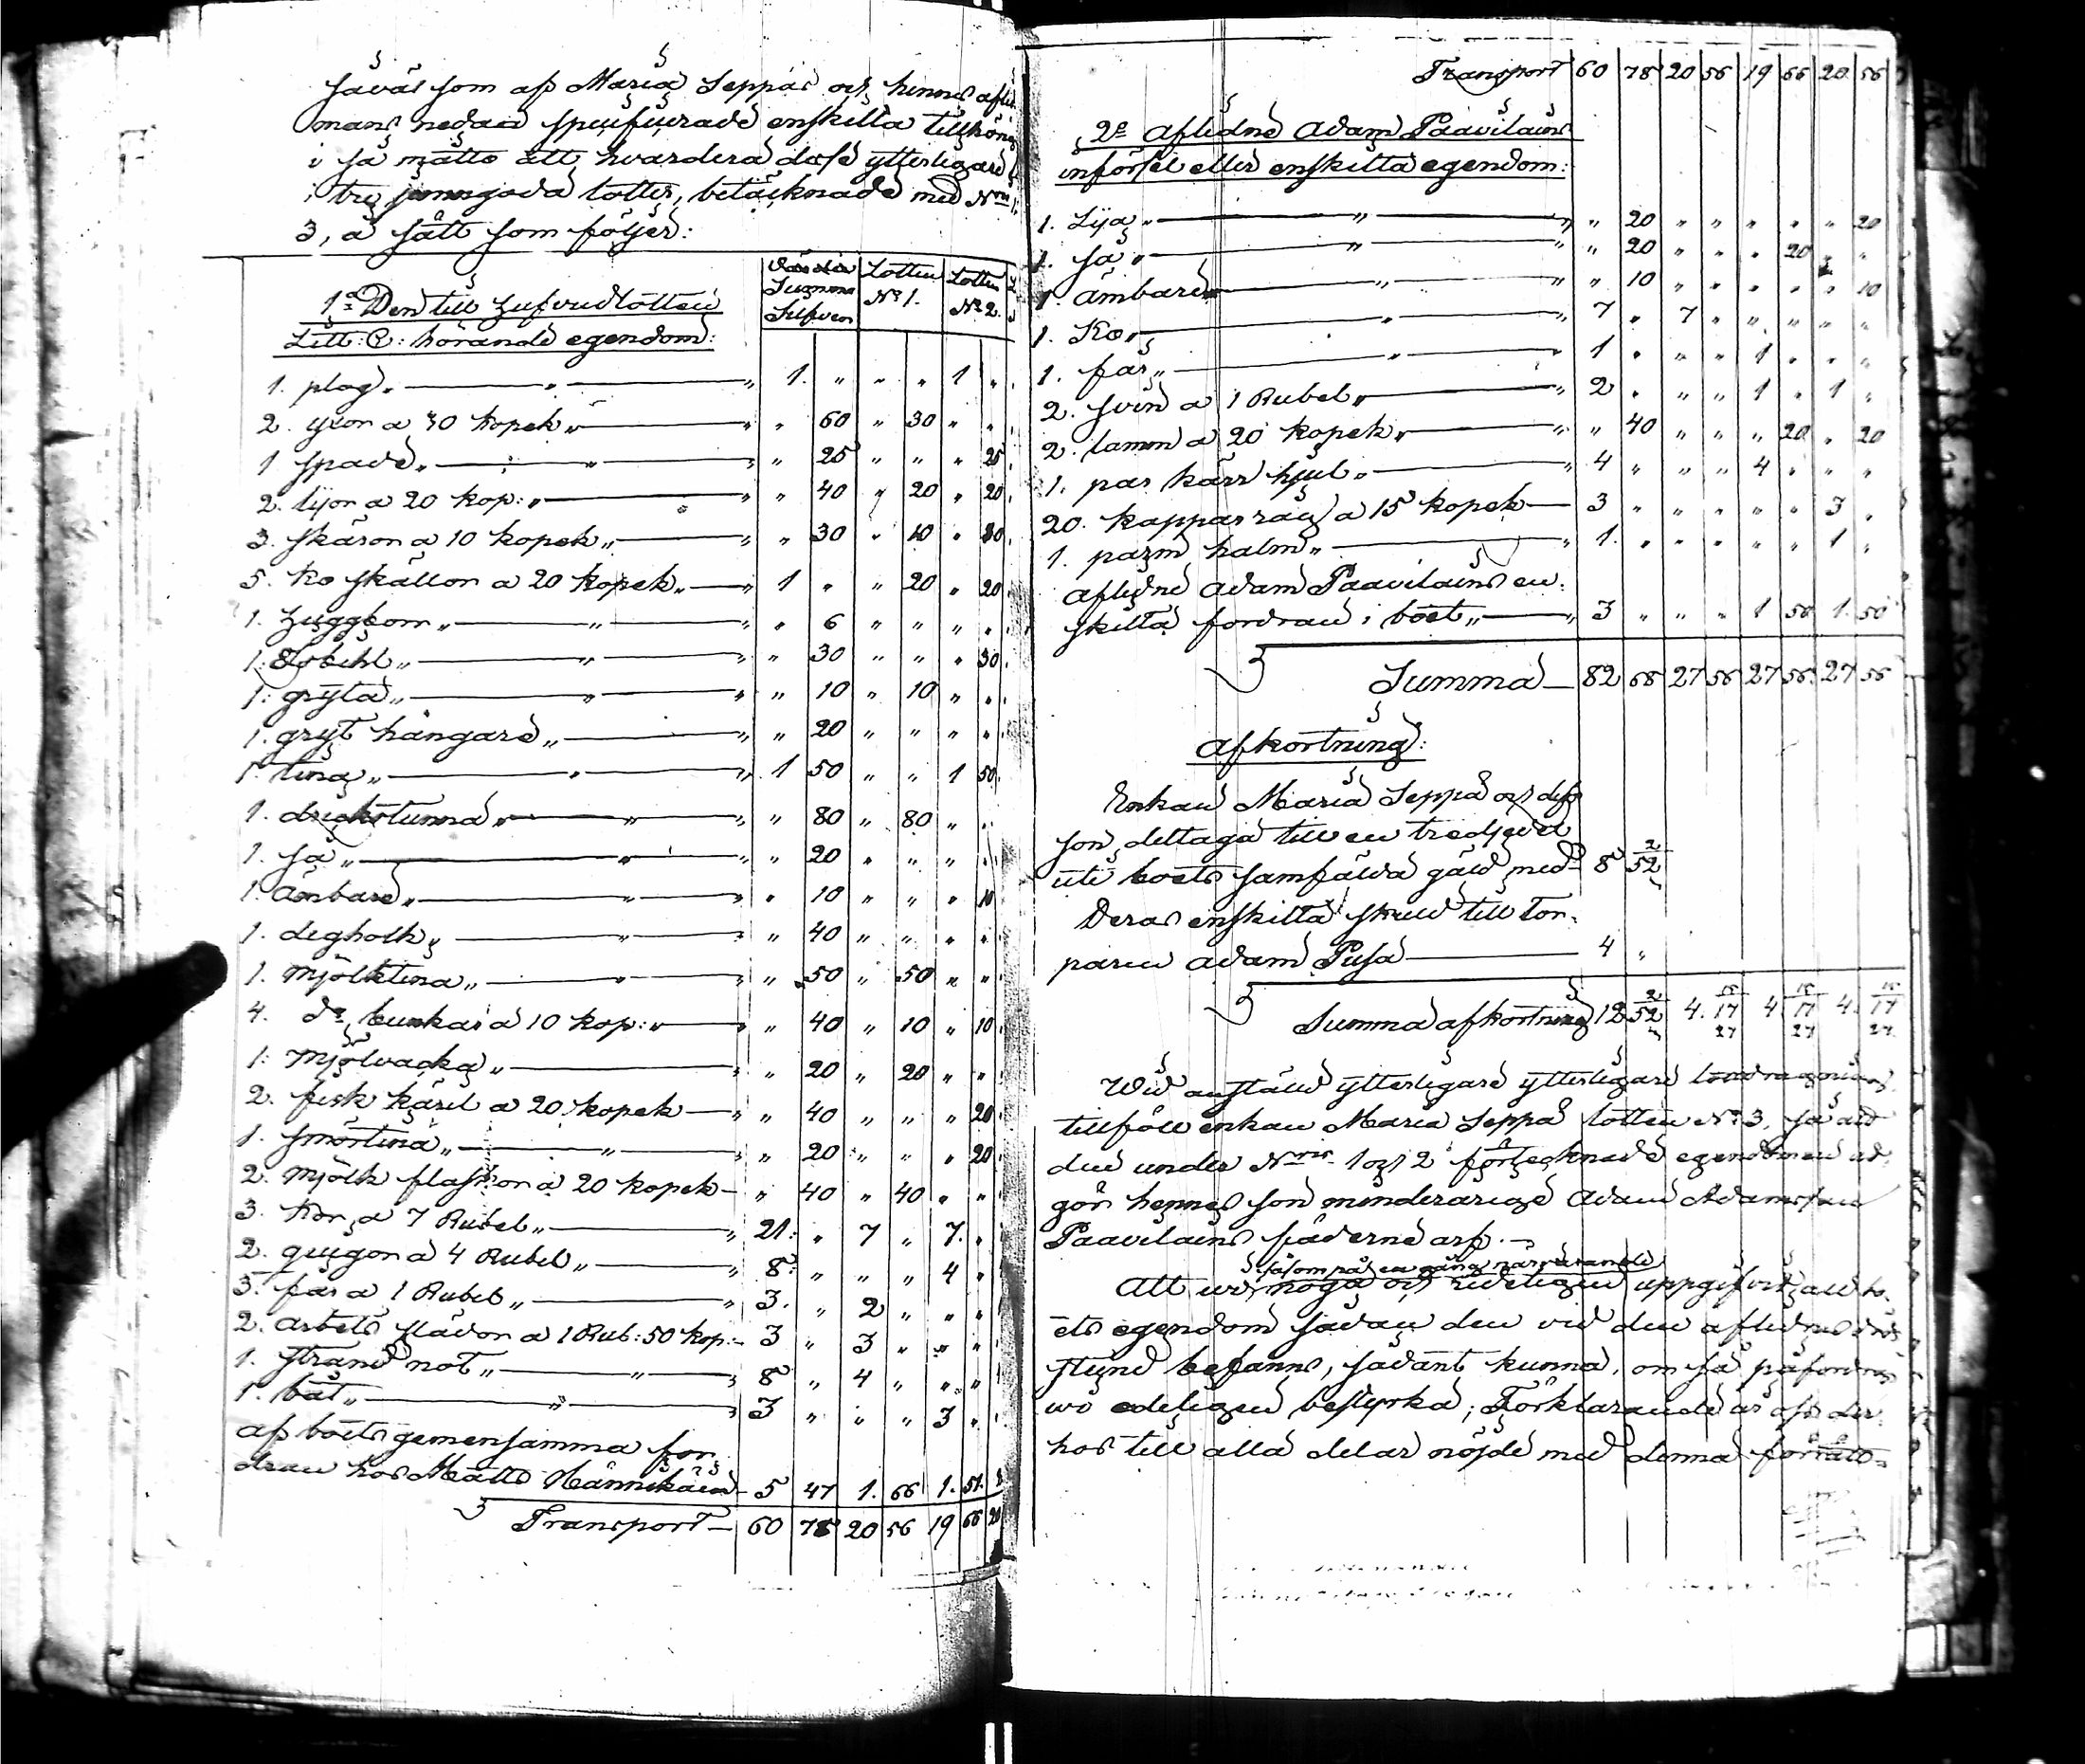 såväl som af Maria Seppäs och hennes afl:
mans nedan specificerade enskilta tillhörig
i så måtto att hvardera dels ytterligare
i tre jemngoda lotter, betäcknade med N:ris 1,
3, å sätt som följer:
1:o Den till hufvudlotten
Litt: B: hörande egendom:
Värdia Summa Silfver Lotten N:o 1. Lotten N:o 2.
1. plog " — " — " 1. " " " 1 "
2. yxor a 30 kopek " — " " 60 " 30 " "
1 spade " — " — " " 25 " " " 25
2. lijor a 20 kop: " — " " 40 " 20 " 20
3. skäror a 10 kopek " — " " 30 " 10 " 20
5. ko skällor a 20 kopek " — " 1 " " 20 " 20
1. huggbom " — " — " " 6 " " " "
1. Isbihl " — " — " " 30 " " " 30
1: gryta " — " — " " 10 " 10 " "
1. gryt hängare " — " " 20 " " " "
1. tina " — " — " 1 50 " " 1 50
1. drickstunna " — " — " " 80 " 80 " "
1. så " — " — " " 20 " " " "
1. Ämbare " — " — " " 10 " " " 10
1. degholk " — " — " " 40 " " " "
1. Mjölktina " — " — " " 50 " 50 " "
4. d:o bunkar a 10 kop: " — " " 40 " 10 " 10
1: Mjölvacka " — " — " " 20 " 20 " "
2. fisk käril a 20 kopek — " " 40 " " " 20
1. smörtina " — " — " " 20 " " " 20
2. Mjölk flaskor a 20 kopek — " 40 " 40 " "
3. Kor a 7 Rubel " — " 21: " 7 " 7. "
2. qvigor a 4 Rubel " — " 8: " " " 4 "
3. får a 1 Rubel " — " 3. " 2 " " "
2. arbets slädor a 1 Rub: 50 kop: — 3 " 3 " " "
1. strand not " — " — " 8 " 4 " " "
1. båt " — " — " 3 " " " 3 "
af boets gemensamma for
dran hos Matts Hännikäin — 5 47 1. 66 1. 51.
Transport — 60 78 20 56 19 66 20
Transport 60 78 20 56 19 66 20 56
2:o Aflidne Adam Paavilains
införsel eller enskilta egendom:
1. Lija " — " — " " 20 " " " " " 20
1. så " — " — " " 20 " " " 20 " "
1. ämbare — " — " " 10 " " " " " 10
1. Ko " — " — " 7 " 7 " " " " "
1. får " — " — " 1 " " " 1 " " "
2. svin a 1 Rubel " — " 2 " " " 1 " 1 "
2. lamm a 20 kopek " — " " 40 " " " 20 " 20
1. par kärr hjul " — " 4 " " " 4 " " "
20. kappar råg a 15 kopek — 3 " " " " " 3 "
1. parm halm " — " 1. " " " " " 1 "
aflidne Adam Paavilains en:
skilta fordran i boet " — " 3 " " " 1 50 1. 50
Summa — 82 68 27 56 27 56. 27 56
Afkortning:
Enkan Maria Seppä och dess
son deltaga till en tredjedel
uti boets samfälda gäld med — 8 52
Deras enskilta skuld till tor-
paren Adam Pusa — 4 "
Summa afkortning 12 52 4. 17 4 17 4. 17
27 27 27
Wid anstäld ytterligare ytterligare
tillföll enkan Maria Seppä lotten N:o 3, så att
den under N:ris 1 och 2 förtecknade egendomen ut
gör hennes son minderårige Adam Adamsson
Paavilains fäderne arf. —
såsom på en gång närvarande
Att wi, noga och redeligen uppgifvit all bo-
ets egendom sådan den vid den aflidnes döds
stund befanns, sådant kunna, om så påfordras
wi edeligen bestyrka; Förklarande oss der
hos till alla delar nöjde med denna förrätt=